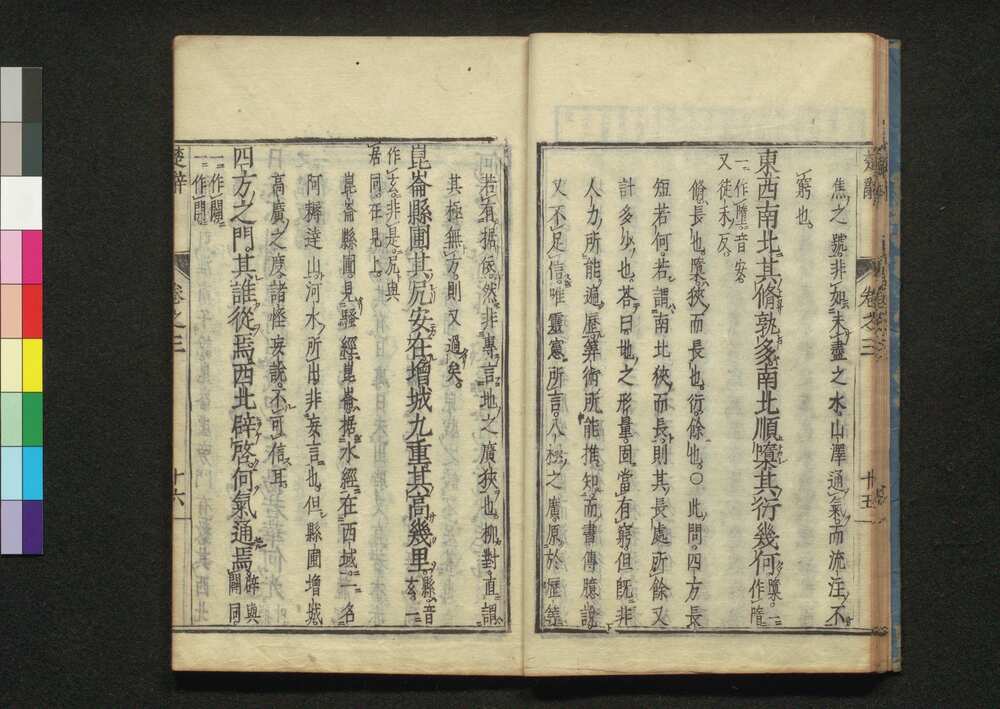 焦之號非如未盡之水山澤通氣而流注不
窮也
東西南北其脩孰多南北順墮其衍幾何墮一作隋
一作墮音妥
又徒禾反
脩長也墮狹而長也衍餘也○此問四方長
短若何若謂南北狹而長則其長處所餘又
計多少也荅曰地之形量固當有窮但旣非
人力所能遍歷筭術所能推知而書傳臆說
又不足信唯靈憲所言八極之廣原於歷筭
若有据依然非專言地之廣狹也柳對直謂
其極無方則又過矣
崑崙縣圃其凥安在增城九重其高幾里縣音玄一
作玄非是凥與
居同在見上
崑崙縣圃見騷經崑崙据水經在西域一名
阿耨達山河水所出非妄言也但縣圃增城
高廣之度諸怪妄說不可信耳
四方之門其誰從焉西北辟啓何氣通焉辟與闢同
一作闢
一作開
楚辭
卷之三
十五
楚辭
卷之三
十六